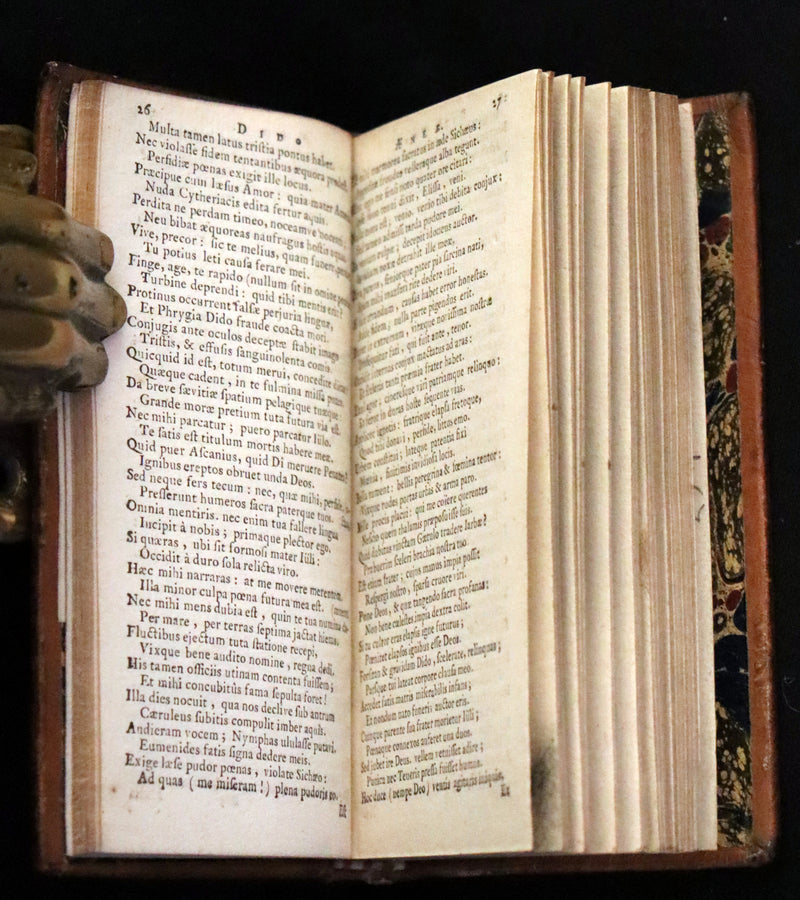 26
DIDO
Multa tamen latus tristia pontus habet.
Nec violaſſe fidem tentantibus æquora prodeſt:
Perfidiæ pœnas exigit ille locus.
Præcipue cum læſus Amor: quia mater Amorum
Nuda Cytheriacis edita fertur aquis.
Perdita ne perdam timeo, noceamve nocenti:
Neu bibat æquoreas naufragus hoſtis aquas.
Vive, precor: ſic te melius, quam funere, perdam
Tu potius leti cauſa ferare mei.
Finge, age, te rapido (nullum ſit in omine pondus)
Turbine deprendi: quid tibi mentis erit?
Protinus occurrent falſæ perjuria linguæ,
Et Phrygia Dido fraude coacta mori.
Conjugis ante oculos deceptæ ſtabit imago
Triſtis, & effuſis ſanguinolenta comis.
Quicquid id eſt, totum merui, concedite
Quæque cadent, in te fulmina miſſa putes.
Da breve ſævitiæ ſpatium pelagique tuæque:
Grande moræ pretium tuta futura via eſt.
Nec mihi parcatur; puero parcatur Iülo.
Te ſatis eſt titulum mortis habere meæ.
Quid puer Aſcanius, quid Di meruere Penates?
Ignibus ereptos obruet unda Deos.
Sed neque fers tecum: nec, quæ mihi, perfide,
Preſſerunt humeros ſacra paterque tuos.
Omnia mentiris. nec enim tua fallere lingua
Incipit à nobis; primaque plector ego.
Si quæras, ubi ſit formoſi mater Iüli:
Occidit à duro ſola relicta viro.
Hæc mihi narraras: at me movere merentem.
Illa minor culpa pœna futura mea eſt.
Nec mihi mens dubia eſt, quin te tua numina
Per mare, per terras ſeptima jactat hiems.
Fluctibus ejectum tuta ſtatione recepi,
Vixque bene audito nomine, regna dedi.
His tamen officiis utinam contenta fuiſſem;
Et mihi concubitûs fama ſepulta foret!
Illa dies nocuit, qua nos declive ſub antrum
Cæruleus ſubitis compulit imber aquis.
Audieram vocem; Nymphas ululaſſe putavi.
Eumenides fatis ſigna dedere meis.
Exige læſe pudor pœnas, violate Sichæo:
Ad quas (me miſeram!) plena pudoris eo.
Eſt
27
ÆNEÆ.
marmorea ſacratus in æde Sichæus:
frondes velleraque alba tegunt.
ſenſi noto quater ore citari:
ſono tenui dixit, Eliſſa, veni.
venio, venio tibi debita conjux;
admiſſi tarda pudore mei.
culpæ; decepit idoneus auctor.
noxæ detrahit ille meæ.
ſenior pater pia ſarcina nati,
manſuri rite dedere viri.
cauſas habet error honeſtas.
fidem; nulla parte pigendus erit.
in extremum, vitæque noviſſima noſtræ
fati, qui fuit ante, tenor.
internas conjux mactatus ad aras:
ſceleris tanti præmia frater habet.
agor; cineresque viri patriamque relinquo:
feror in duras hoſte ſequente vias.
ignotis: fratrique elapſa fretoque,
Quod tibi donavi, perfide, litus emo.
conſtitui; lateque patentia fixi
finitimis invidioſa locis.
Bella tument: bellis peregrina & fœmina tentor:
Vixque rudes portas urbis & arma paro.
Mille procis placui: qui me coiere querentes
Neſcio quem thalamis præpoſuiſſe ſuis.
Quid dubitas vinctam Gætulo tradere Iarbæ?
Præbuerim ſceleri brachia noſtra tuo.
Eſt etiam frater, cujus manus impia poſſit
Reſpergi noſtro, ſparſa cruore viri.
Pone Deos, & quæ tangendo ſacra profanas:
Non bene cæleſtes impia dextra colit.
Si tu cultor eras elapſis igne futurus;
Pœnitet elapſos ignibus eſſe Deos.
Forſitan & gravidam Dido, ſcelerate, relinquas;
Parſque tui lateat corpore clauſa meo.
Accedet fatis matris miſerabilis infans;
Et nondum nato funeris auctor eris.
Cumque parente ſua frater morietur Iüli;
Pœnaque connexos auferet una duos.
Sed jubet ire Deus. vellem vetuiſſet adire;
Punica nec Teucris preſſa fuiſſet humus.
Hoc duce (nempe Deo) ventis agitaris iniquis,
Et